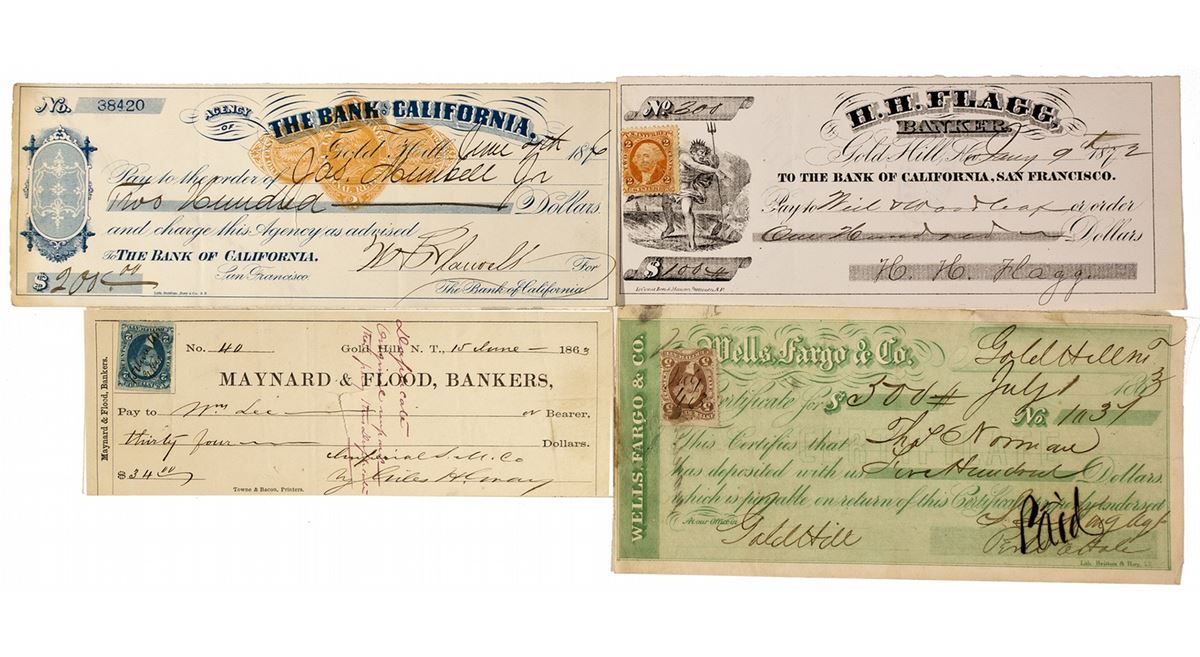 No. 38420
AGENCY OF
THE BANK OF CALIFORNIA.
Gold Hill, June 187
Pay to the order of Jas. Jr
Two Hundred Dollars
and charge this Agency as advised
To THE BANK OF CALIFORNIA.
San Francisco.
For
The Bank of California
$200.00
No 300
H. H. FLAGG,
BANKER.
Gold Hill, Nev. 9th 1872
TO THE BANK OF CALIFORNIA, SAN FRANCISCO.
Pay to or order
One Hundred Dollars
$100
H. H. Flagg
No. 40 Gold Hill, N. T., 15 June 1863
Maynard & Flood, Bankers.
MAYNARD & FLOOD, BANKERS,
Pay to Wm Lee or Bearer,
thirty four Dollars.
$34 00
Imperial S. M. Co
Towne & Bacon, Printers.
Duplicate
WELLS, FARGO & CO.
Wells, Fargo & Co.
Gold Hill NT
Certificate for $500 July 1 1863
No. 1037
This Certifies that Thos Norman
has deposited with us Five Hundred Dollars
which is payable on return of this Certificate properly endorsed
At our Office in
Gold Hill
Paid
Lith. Britton & Rey, S.F.